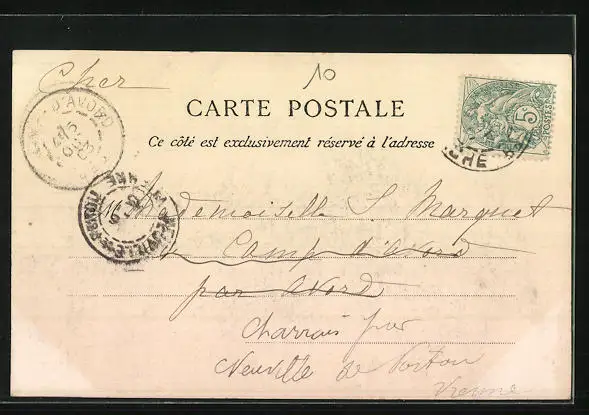 Cher
10
CARTE POSTALE
Ce côté est exclusivement réservé à l'adresse
5
POSTES
D'AVORD
CHER
NEUVILLE-DE-POITOU
VIENNE
Mademoiselle S. Marquet
Camp d'Avord
par Avord
Charrais par
Neuville de Poitou
Vienne